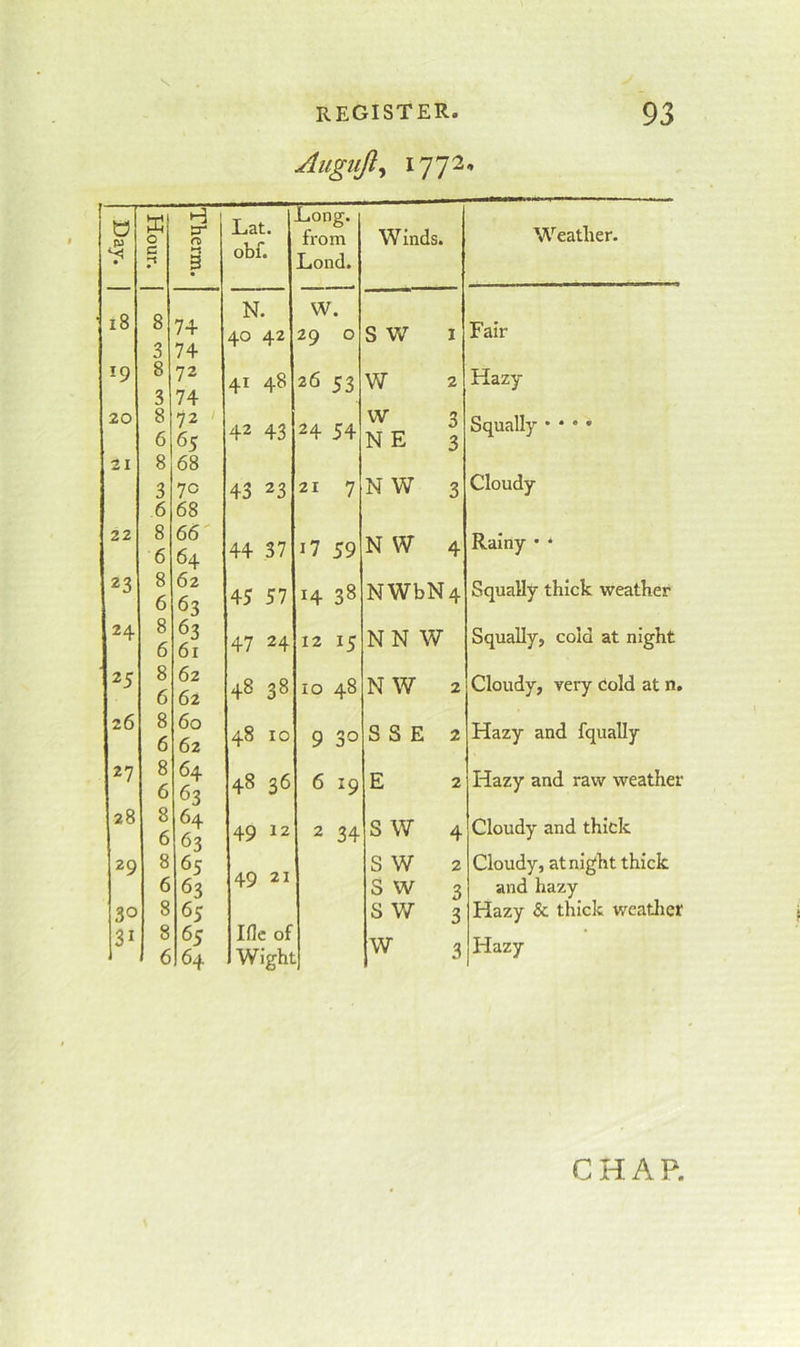 REGISTER. 93
Auguſt, 1772.
Day. Hour. Therm. Lat. obſ. Long. from Lond. Winds. Weather.
N. W.
18 8 74 40 42 29 0 S W 1 Fair
3 74
19 8 72 41 48 26 53 W 2 Hazy
3 74
20 8 72 42 43 24 54 W 3 Squally • • • •
6 65 N E 3
21 8 68
3 70 43 23 21 7 N W 3 Cloudy
6 68
22 8 66 44 37 17 59 N W 4 Rainy • •
6 64
23 8 62 45 57 14 38 NWbN 4 Squally thick weather
6 63
24 8 63 47 24 12 15 N N W Squally, cold at night
6 61
25 8 62 48 38 10 48 N W 2 Cloudy, very cold at n.
6 62
26 8 60 48 10 9 30 S S E 2 Hazy and ſqually
6 62
27 8 64 48 36 6 19 E 2 Hazy and raw weather
6 63
28 8 64 49 12 2 34 S W 4 Cloudy and thick
6 63
29 8 65 49 21 S W 2 Cloudy, at night thick
6 63 S W 3 and hazy
30 8 65 S W 3 Hazy & thick weather
31 8 65 Iſle of W 3 Hazy
6 64 Wight
CHAP.